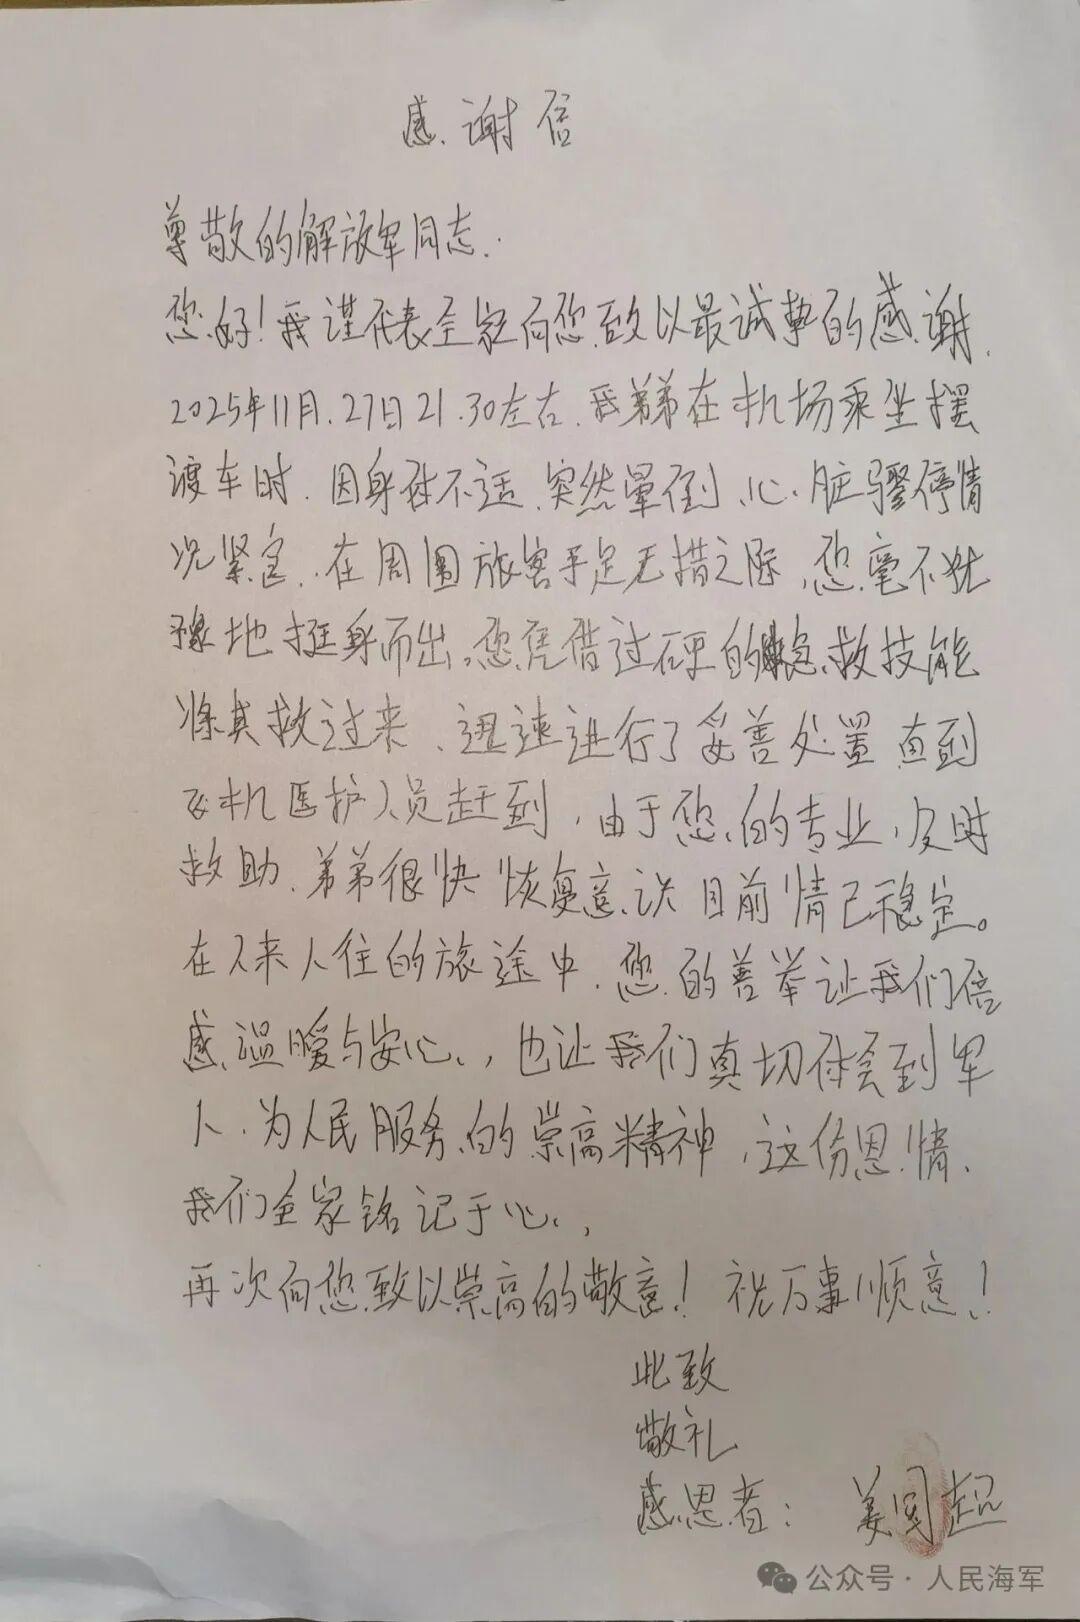 感谢信
尊敬的解放军同志.
您好!我谨代表全家向您致以最诚挚的感谢.
2025年11月.27日21.30左右.我弟弟在机场乘坐摆
渡车时.因身体不适.突然晕倒、心脏骤停情
况紧急.在周围旅客手足无措之际,您毫不犹
豫地挺身而出。您凭借过硬的急救技能
将其救过来、迅速进行了妥善处置直到
飞机医护人员赶到,由于您的专业,及时
救助.弟弟很快恢复意识目前情已稳定。
在人来人往的旅途中.您的善举让我们倍
感温暖与安心,也让我们真切体会到军
人.为人民服务的崇高精神,这份恩情、
我们全家铭记于心,
再次向您致以崇高的敬意!祝万事顺意!
此致
敬礼
感恩者:姜国超
公众号·人民海军